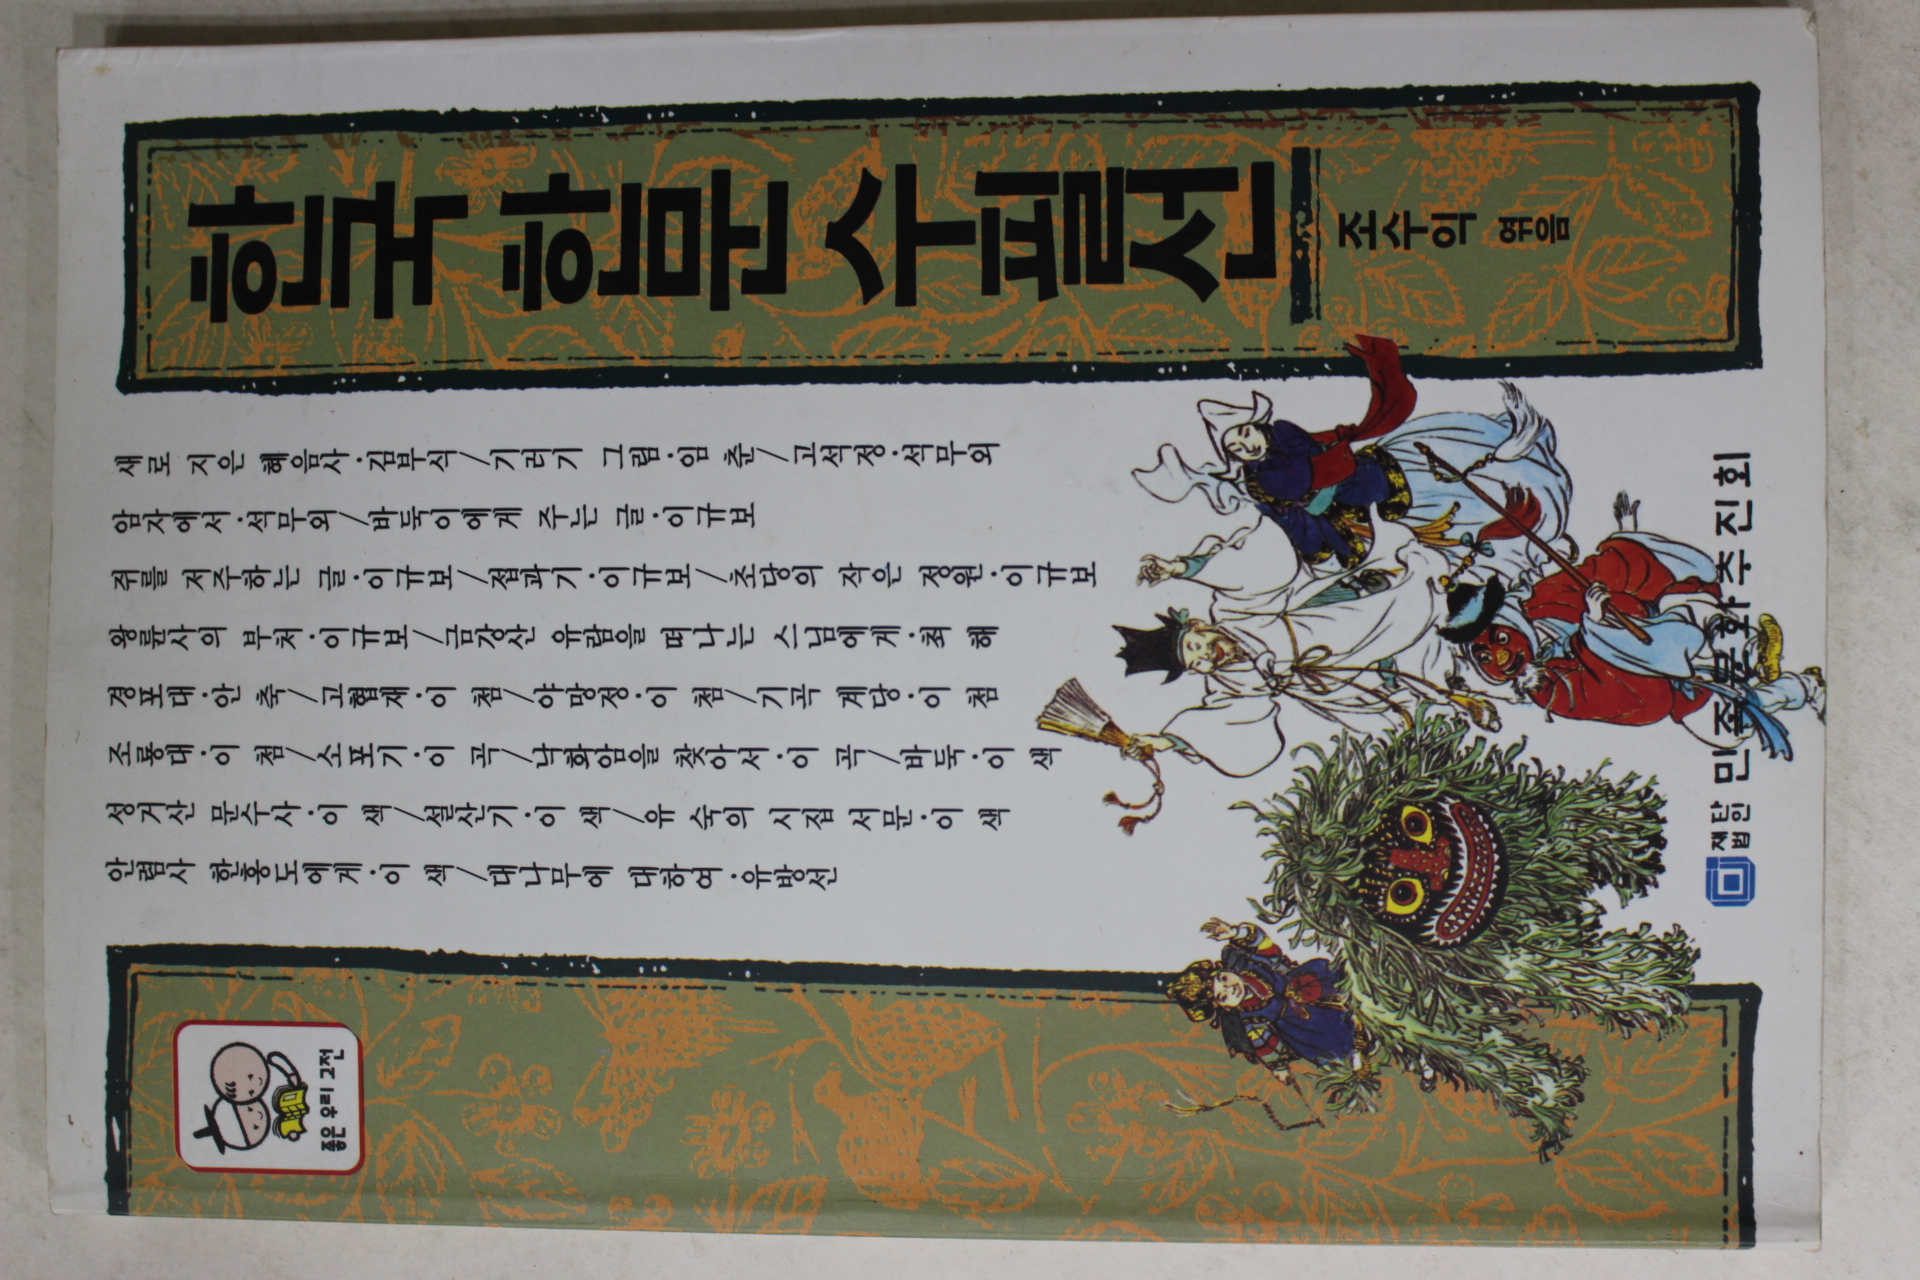 한국 한문 수필선
조수익 엮음
새로 지은 혜음사·김부식/기러기 그림·임 춘/고석정·석무외
암자에서·석무외/바둑이에게 주는 글·이규보
쥐를 저주하는 글·이규보/접과기·이규보/초당의 작은 정원·이규보
왕륜사의 부처·이규보/금강산 유람을 떠나는 스님에게·최 해
경포대·안 축/고협재·이 첨/야망정·이 첨/기곡 계당·이 첨
조룡대·이 첨/소포기·이 곡/낙화암을 찾아서·이 곡/바둑·이 색
성거산 문수사·이 색/설산기·이 색/유 숙의 시집 서문·이 색
안렴사 한홍도에게·이 색/대나무에 대하여·유방선
좋은 우리 고전
재단법인 민족문화추진회